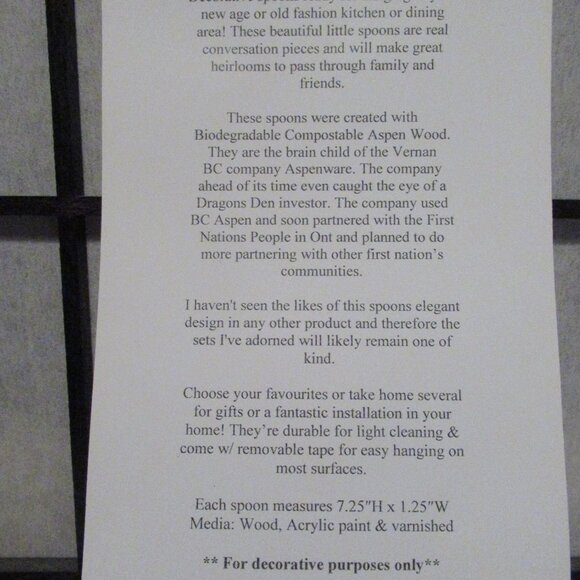 new age or old fashion kitchen or dining
area! These beautiful little spoons are real
conversation pieces and will make great
heirlooms to pass through family and
friends.
These spoons were created with
Biodegradable Compostable Aspen Wood.
They are the brain child of the Vernan
BC company Aspenware. The company
ahead of its time even caught the eye of a
Dragons Den investor. The company used
BC Aspen and soon partnered with the First
Nations People in Ont and planned to do
more partnering with other first nation's
communities.
I haven't seen the likes of this spoons elegant
design in any other product and therefore the
sets I've adorned will likely remain one of
kind.
Choose your favourites or take home several
for gifts or a fantastic installation in your
home! They're durable for light cleaning &
come w/ removable tape for easy hanging on
most surfaces.
Each spoon measures 7.25"H x 1.25"W
Media: Wood, Acrylic paint & varnished
** For decorative purposes only**